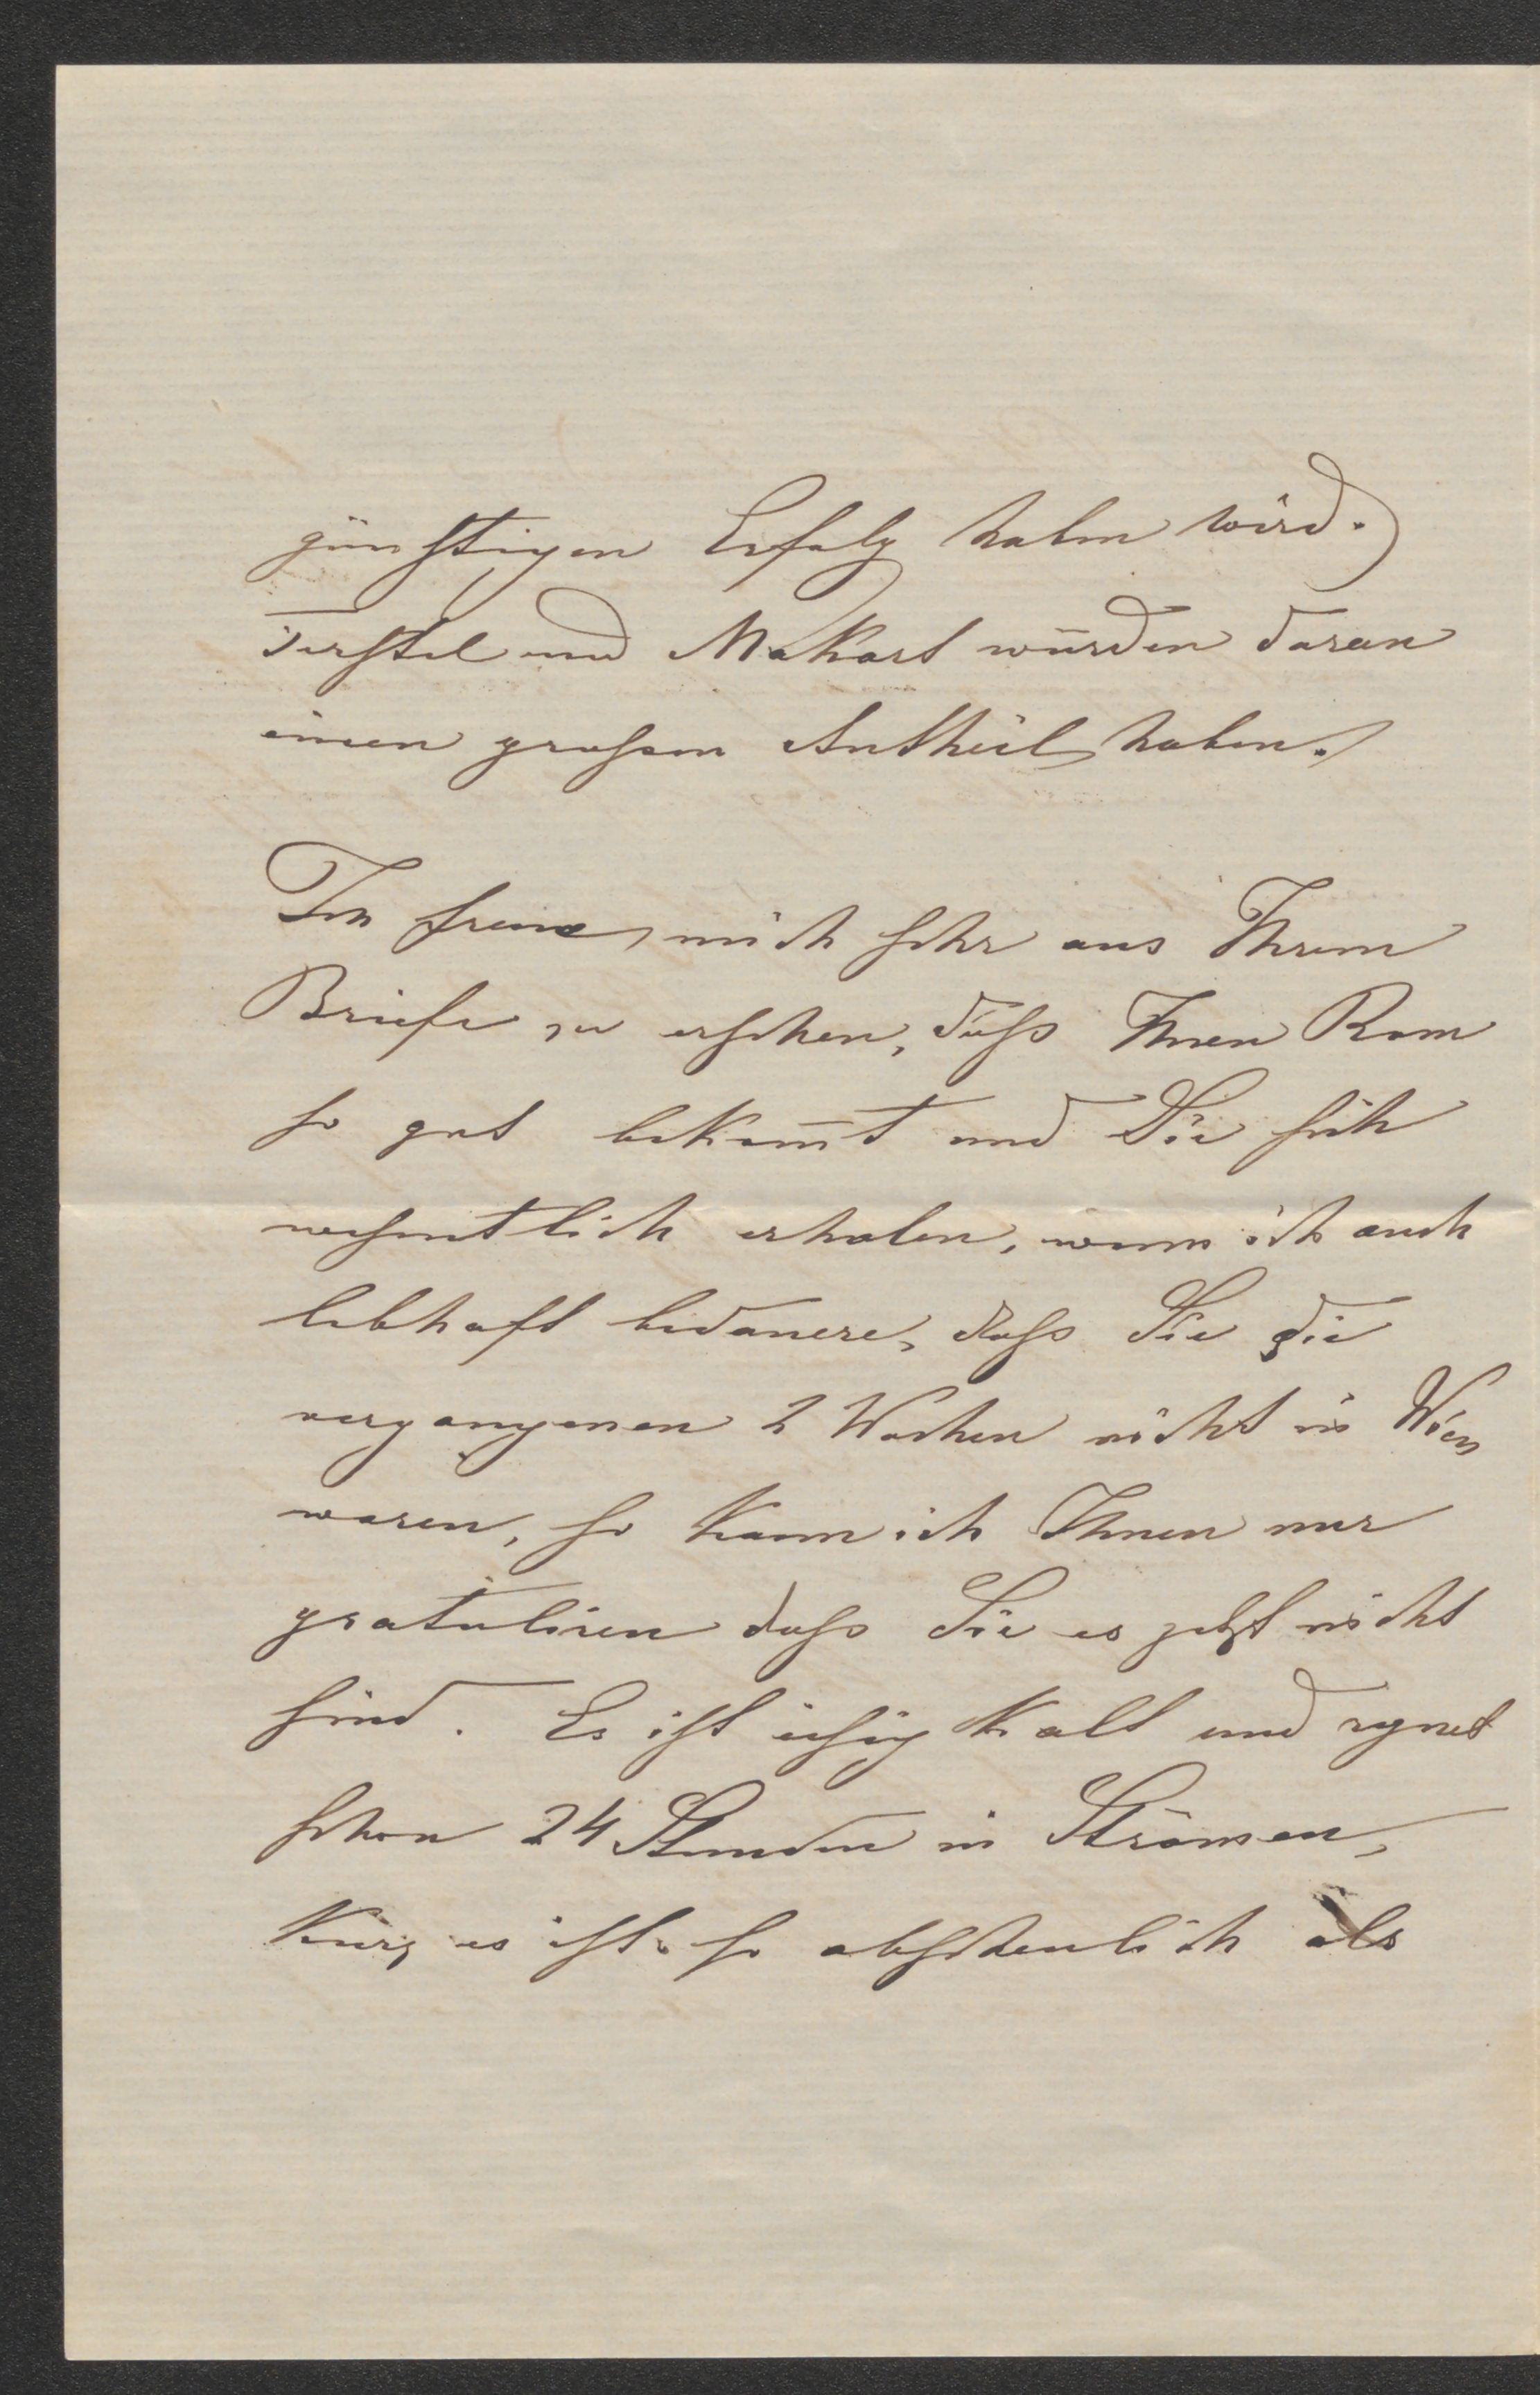 günstigen Erfolg haben wird.
Ferstel und Makart würden daran
einen grossen Antheil haben.
Ich freue mich sehr aus Ihrem
Briefe zu ersehen, dass Ihnen Rom
so gut bekom̅t und Sie sich
wesentlich erholen, wenn ich auch
lebhaft bedauere, dass Sie die
vergangenen 2 Wochen nicht in Wien
waren, so kann ich Ihnen nur
gratuliren dass Sie es jetzt nicht
sind. Es ist eisig kalt und regnet
schon 24 Stunden in Strömen,
kurz es ist so abscheulich als